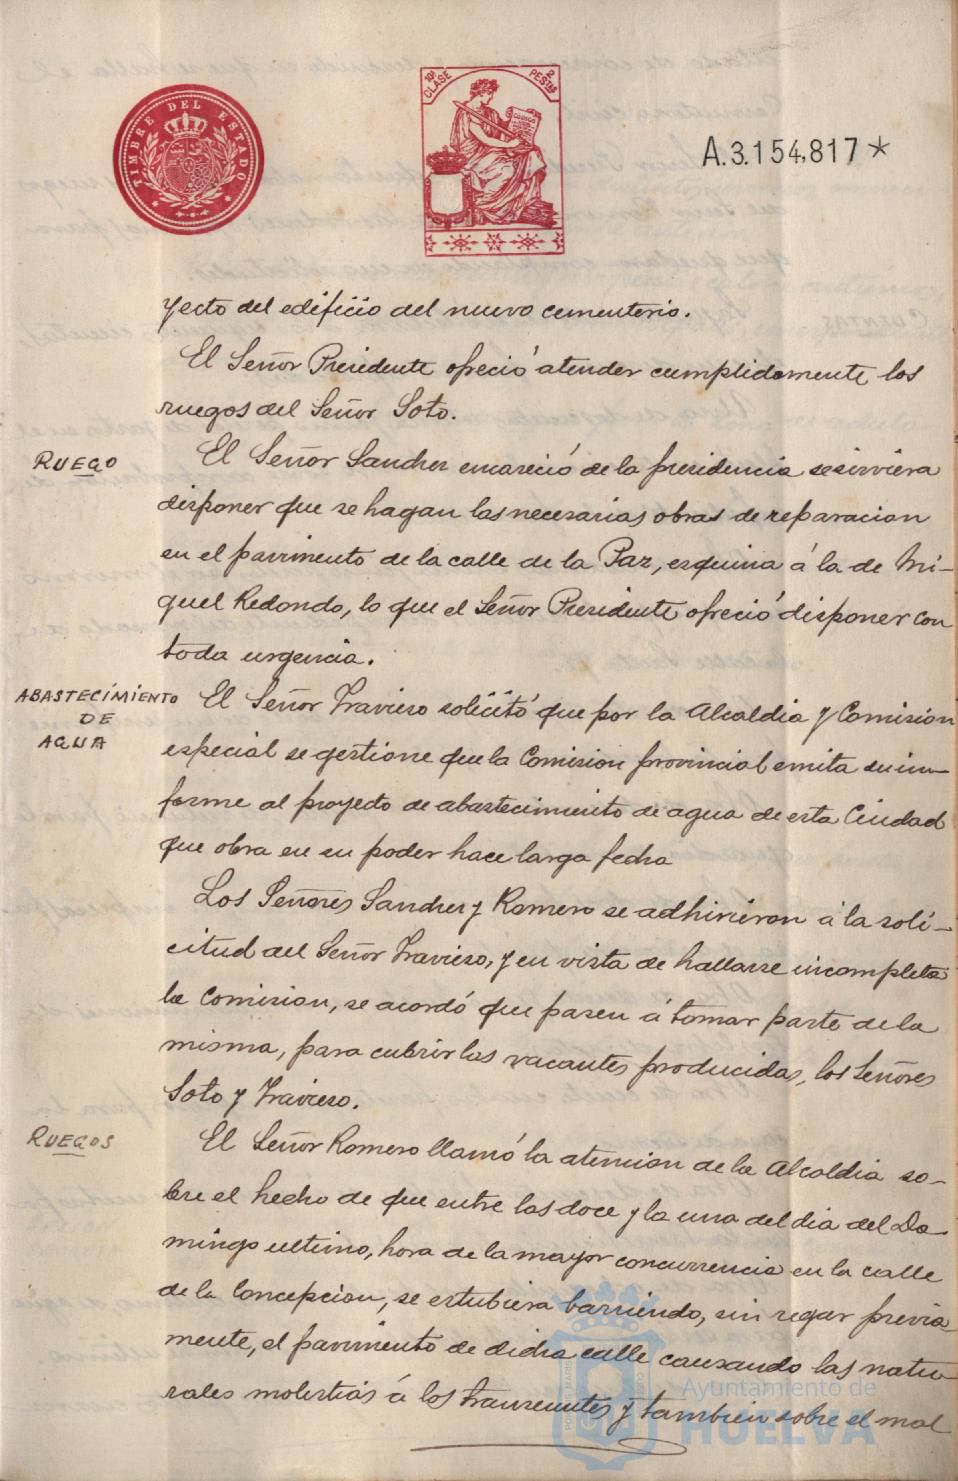 TIMBRE DEL ESTADO
10ª CLASE
2 PESTAS
A.3.154,817*
yecto del edificio del nuevo cementerio.
El Señor Presidente ofreció atender cumplidamente los
ruegos del Señor Soto.
RUEGO
El Señor Sanchez encareció de la presidencia se sirviera
disponer que se hagan las necesarias obras de reparacion
en el pavimento de la calle de la Paz, esquina á la de Mi-
guel Redondo, lo que el Señor Presidente ofreció disponer con
toda urgencia.
ABASTECIMIENTO
DE
AGUA
El Señor Travieso solicitó que por la Alcaldia y Comision
especial se gestione que la Comision provincial emita su in-
forme al proyecto de abastecimiento de agua de esta Ciudad
que obra en su poder hace larga fecha
Los Señores Sanchez y Romero se adhirieron á la soli-
citud del Señor Travieso, y en vista de hallarse incompleta
la Comision, se acordó que pasen á tomar parte de la
misma, para cubrir las vacantes producidas, los Señores
Soto y Travieso.
RUEGOS
El Señor Romero llamó la atencion de la Alcaldia so-
bre el hecho de que entre las doce y la una del dia del Do-
mingo ultimo, hora de la mayor concurrencia en la calle
de la Concepcion, se estubiera barriendo, sin regar previa
mente, el pavimento de dicha calle causando las natu
rales molestias á los transeuntes y tambien sobre el mal
Ayuntamiento de
HUELVA